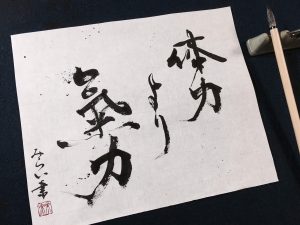 体力
より
氣力
みらい書